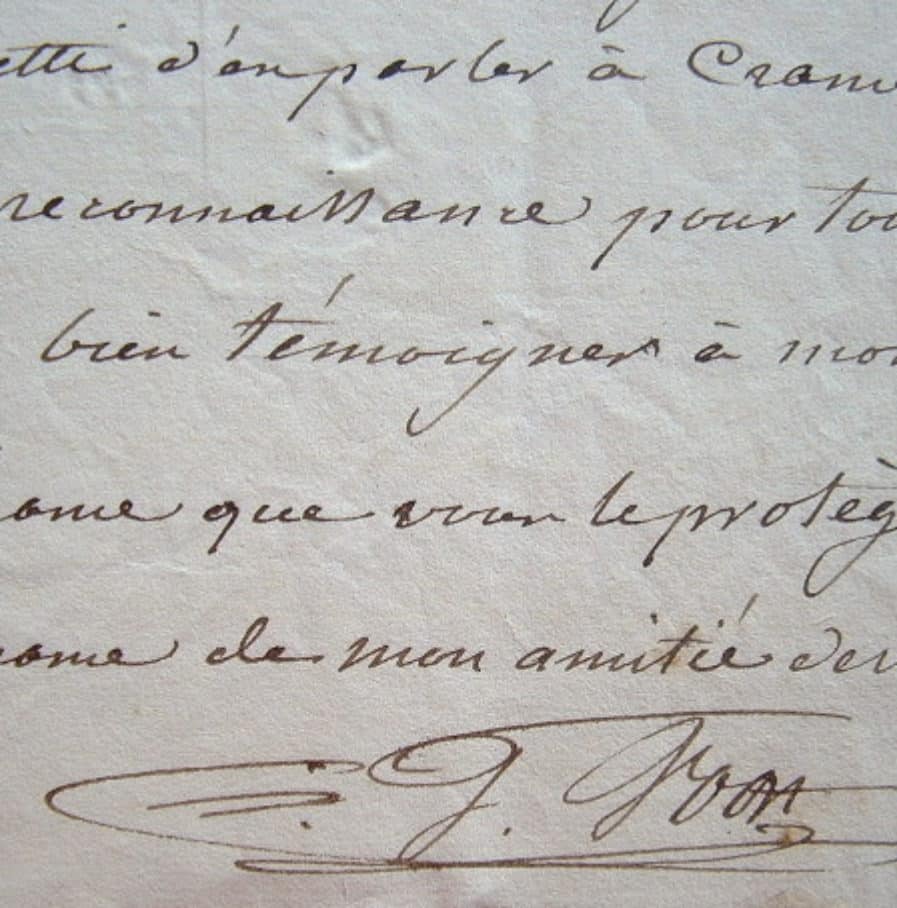 etti d'en parler à Cram
reconnaissance pour tou
bien témoigner à mon
ame que vous le protèg
ame de mon amitié dev